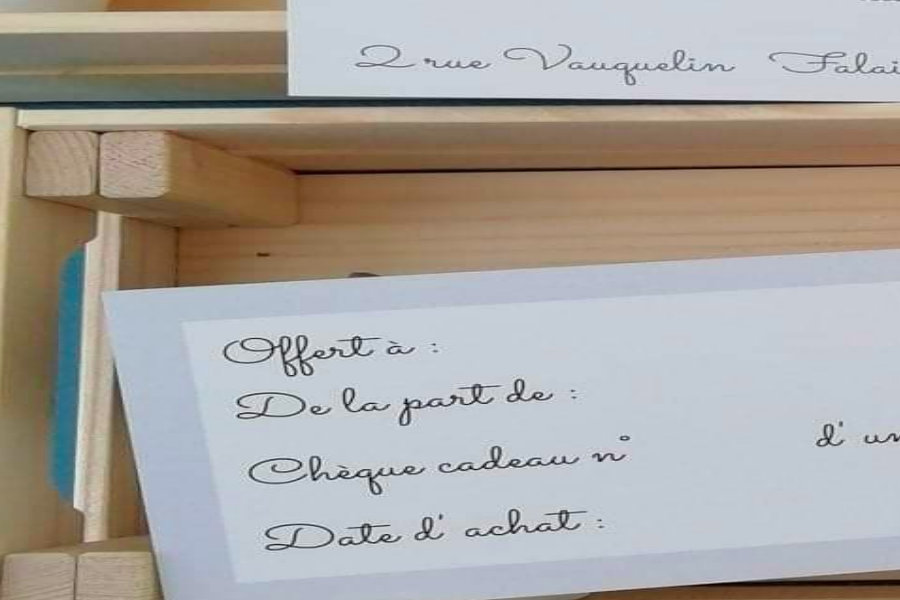 2 rue Vauquelin Falai
Offert à :
De la part de :
Chèque cadeau n° d' un
Date d' achat :